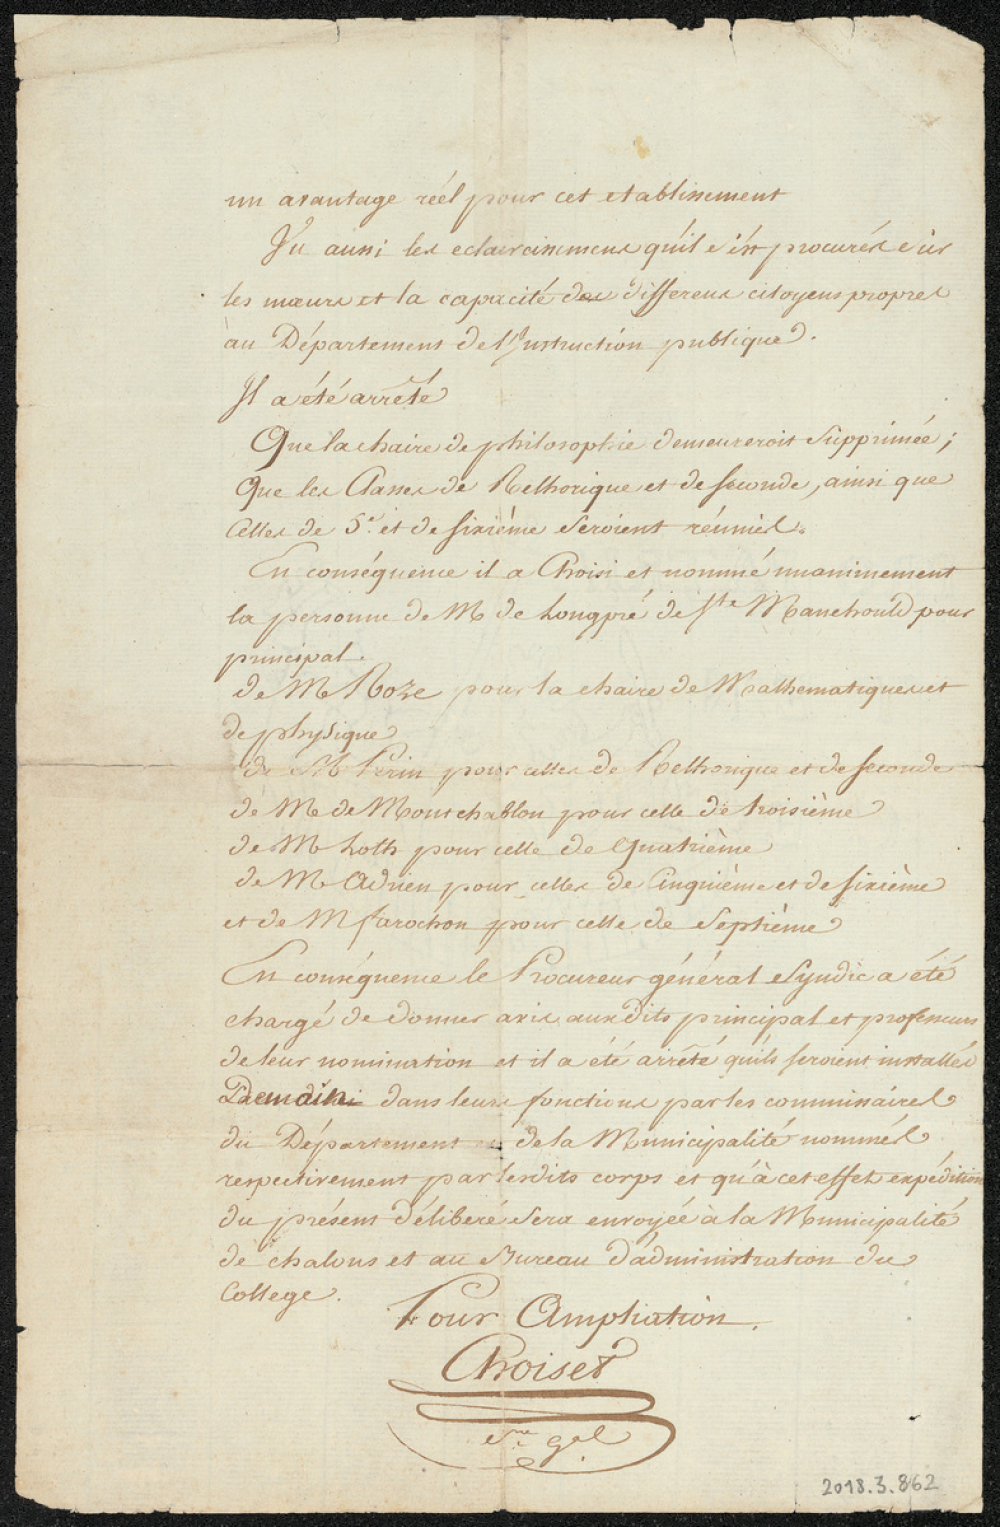 un avantage réel pour cet etablissement
Vu aussi les eclaircissemens qu'il s'est procurés sur
les mœurs et la capacité des differens citoyens propres
au Département de l'Instruction publique.
Il a été arrêté
Que la chaire de philosophie demeureroit supprimée ;
Que les Classes de Rethorique et de seconde, ainsi que
Celles de 5e. et de sixième seroient réunies.
En conséquence il a Choisi et nommé unanimement
la personne de M de Longpré de Ste Manehould pour
principal.
de M Roze pour la chaire de Mathematiques et
de physique
de M Perin pour celles de Rethorique et de seconde
de M de Montchablon pour celle de troisième
de M Loth pour celle de Quatrième
de M Adrien pour celles de Cinquième et de sixième
et de M farochon pour celle de Septième
En conséquence le Procureur général Syndic a été
chargé de donner avis auxdits principal et professeurs
de leur nomination et il a été arrêté qu'ils seroient installés
dans leurs fonctions par les commissaires
du Département de la Municipalité nommés
respectivement par lesdits corps et qu'à cet effet expédition
du présent déliberé sera envoyée à la Municipalité
de chalons et au Bureau d'administration du
College.
Pour Ampliation.
Choiset
Sre. gal.
2018.3.862